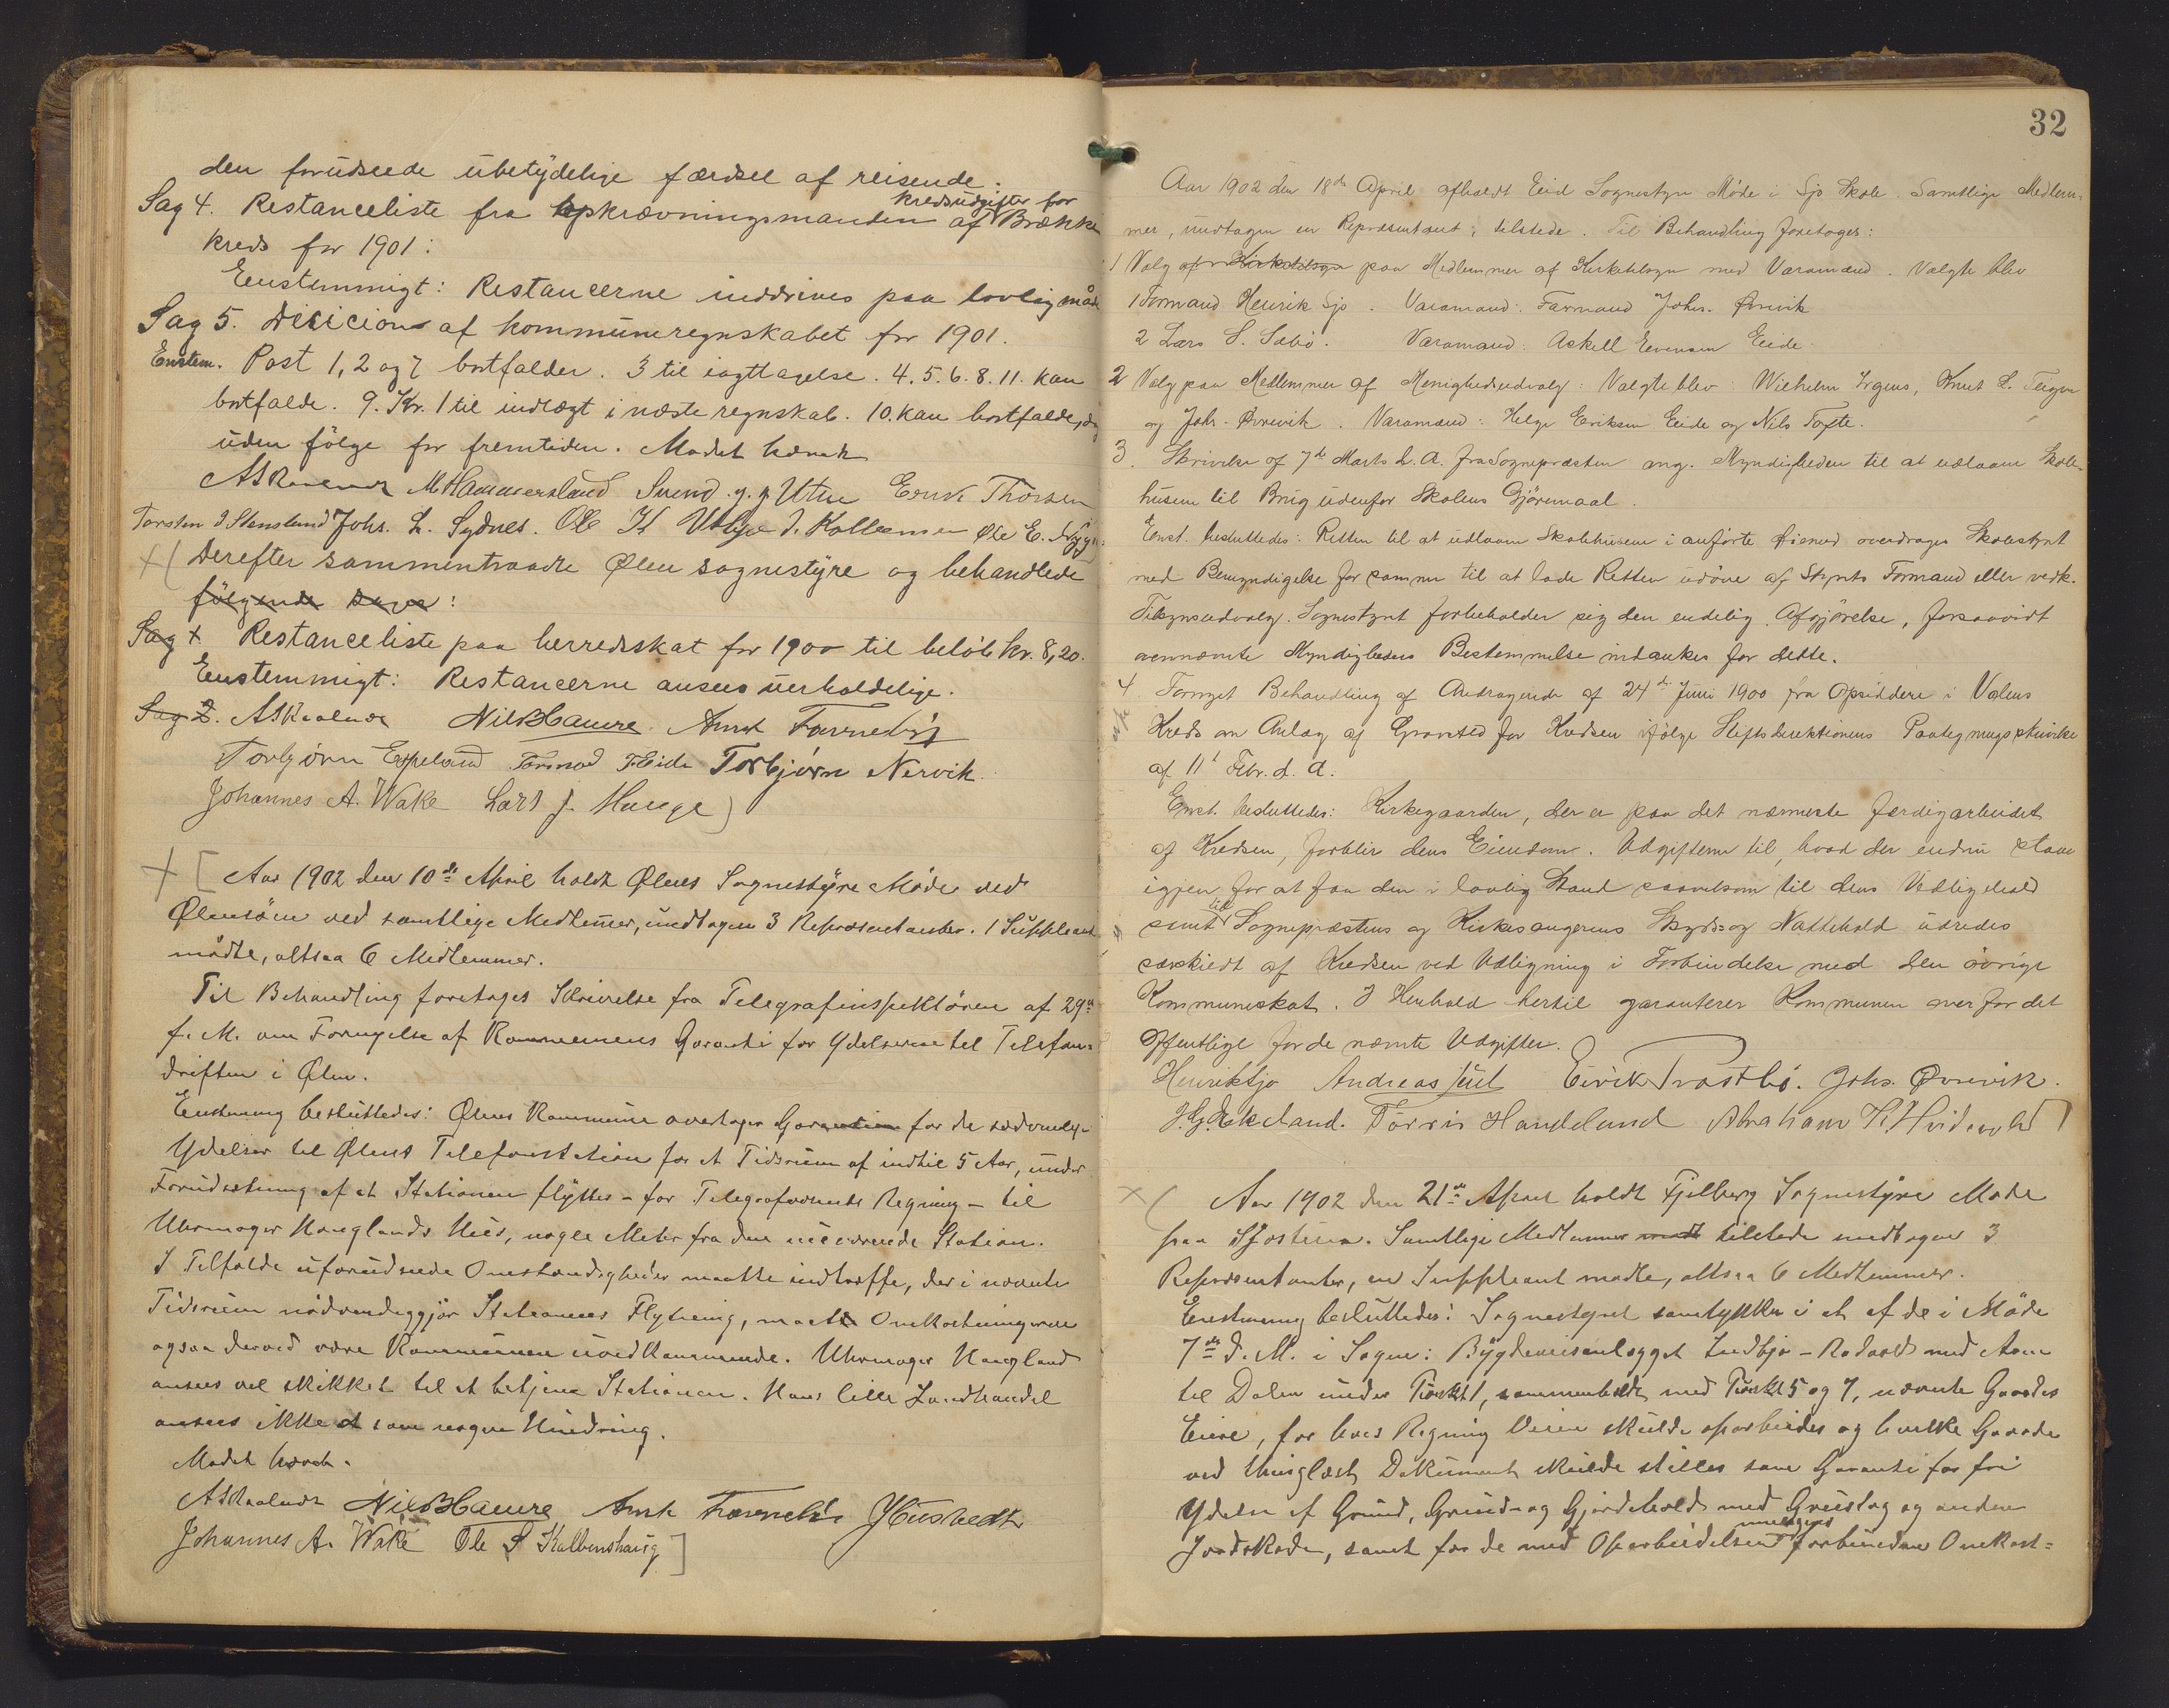 den forudseede ubetydelige færdsel af reisende.
Sag 4. Restanceliste fra opkrævningsmanden af kredsudgifter for Brække
kreds for 1901:
Eenstemmigt: Restancerne inddrives paa lovlig måde
Sag 5. Decicion af kommuneregnskabet for 1901.
Enstem. Post 1, 2 og 7 bortfalder. 3 til iagttagelse. 4. 5. 6. 8. 11. kan
bortfalde. 9. Kr. 1 til indtægt i næste regnskab. 10. kan bortfalde, dog
uden følge for fremtiden. Mødet hævet
M Hammersland Svend Utne Eerik Thorsen
Torsten Stensland Johs. L. Sydnes. Ole
+( Derefter sammentraadte Ølen sognestyre og behandlede
følgende sager:
Sag 1. Restanceliste paa herredsskat for 1900 til beløb kr. 8,20.
Eenstemmigt: Restancerne ansees uerholdelige.
Sag 2. ASkaalnes
Torbjørn Espeland Tormod Eide Torbjørn Nervik.
Johannes A. Wake Lars J. Hauge)
+ [ Aar 1902 den 10de April holdt Ølens Sognestyre Møde ved
Ølensøen ved samtlige Medlemer, undtagen 3 Repræsentanter. 1 Suppleant
mødte, altsaa 6 Medlemmer.
Til Behandling foretoges Skrivelse fra Telegrafinspektøren af 29de
f. M. om Fornyelse af Kommunens Garanti for Ydelserne til Telefon-
driften i Ølen.
Enstemmig besluttedes: Ølens Kommune overtager Garantien for de sædvanlige
Ydelser til Ølens Telefonstation for et Tidsrum af indtil 5 Aar, under
Forudsætning af at Stationen flyttes – for Telegrafvæsenets Regning – til
Uhrmager Hauglands Hus, nogle Meter fra den nuværende Station.
I Tilfælde uforudseede Omstændigheder maatte indtræffe, der i nævnte
Tidsrum nødvendiggjør Stationens Flytning, maatte Omkostningerne
ogsaa derved være Kommunen uvedkommende. Uhrmager Haugland
ansees vel skikket til at betjene Stationen. Hans lille Landhandel
ansees ikke at som nogen Hindring.
Mødet hævet.
ASkaalnes
Johannes A. Wake Ole S Kalbenshaug ]
32
Aar 1902 den 18de April afholdt Eid Sognestyre Møde i Sjo Skole. Samtlige Medlem-
mer, undtagen en Repræsentant, tilstede. Til Behandling foretoges:
1 Valg af Kirketilsyn paa Medlemmer af Kirketilsyn med Varamænd. Valgte blev
1 Formand Henrik Sjo. Varamand: Farmand Johs. Øvrevik
2 Lars S. Sæbø. Varamand: Askell Evensen Eide.
2 Valg paa Medlemmer af Menighedsudvalg: Valgte blev Wilhelm Irgens, Knut L. Teigen
og Johs. Øvrevik. Varamænd: Helge Eriksen Eide og Nils Tofte.
3. Skrivelse af 7de Marts d. A. fra Sognepræsten ang. Myndigheden til at udlaane Skole-
husene til Brug udenfor Skolens Gjøremaal.
Enst. besluttedes: Retten til at udlaane Skolehusene i anførte Øiemed overdrages Skolestyret
med Bemyndigelse for samme til at lade Retten udøve af Styrets Formand eller vedk.
Tilsynsudvalg. Sognestyret forbeholder sig den endelig Afgjørelse, forsaavidt
ovennævnte Myndigheders Bestemmelse indankes for dette.
4. Fornyet Behandling af Andragende af 24de Juni 1900 fra Opsiddere i Vølens
Kreds om Anlæg af Gravsted for Kredsen ifølge Stiftsdirektionens Paategningsskrivelse
af 11te Febr. d. A.
Enst. besluttedes: Kirkegaarden, der er paa det nærmeste færdigarbeidet
af Kredsen, forblir dens Eiendom. Udgifterne til, hvad der endnu staar
igjen for at faa den i lovlig Stand saavelsom til dens Vedligehold
samt til Sognepræstens og Kirkesangerens Skyds og Nattehold udredes
særskiedt af Kredsen ved Udligning i Forbindelse med den øvrige
Kommuneskat. I Henhold hertil garanterer Kommunen overfor det
Offentlige for de nævnte Udgifter.
Henrik Sjo Andreas Juul Eirik Trastbø. Johs. Øvrevik.
J. G. Ekeland. Torris Handeland Abraham
+ ( Aar 1902 den 21de April holdt Fjelberg Sognestyre Møde
paa Sjøstuen. Samtlige Medlemmer mødt tilstede undtagen 3
Repræsentanter, en Suppleant mødte, altsaa 6 Medlemmer.
Enstemmig besluttedes: Sognestyret samtykker i at af de i Møde
7de d. M. i Sagen: Bygdeveisanlægget Lundbjo – Rødvold med Arm
til Dalen under Punkt 1, sammenholdt med Punkt 5 og 7, nævnte Gaardes
Eiere, for hvis Regning Veien skulde oparbeides og hvilke Gaarde
ved thinglæst Dokument skulde stilles som Garanti for fri
Ydelse af Grund, Grinde- og Gjærdehold med Grustag og anden
Jordskade, samt for de med Oparbeidelsen muligens forbundne Omkost-